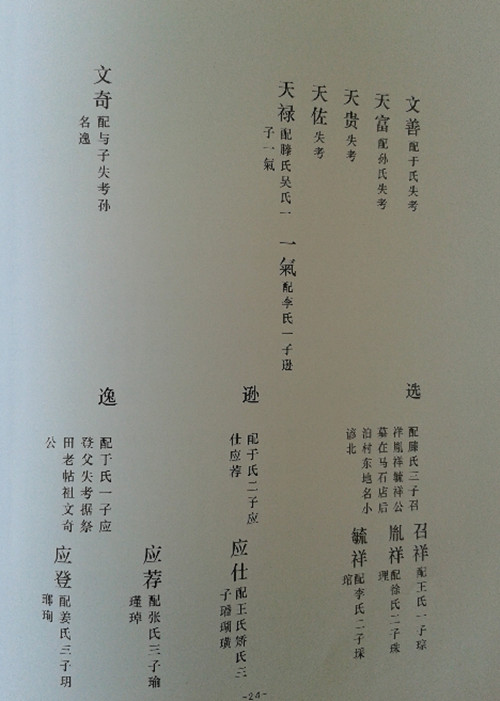 文善 配于氏失考
天富 配孙氏失考
天贵 失考
天佐 失考
天禄 配滕氏吴氏一
子一氣
一氣 配李氏一子逊
文奇 配与子失考孙
名逸
选
配滕氏三子召
祥胤祥毓祥公
墓在马石店后
泊村东地名小
谚北
召祥 配王氏一子琮
胤祥 配徐氏二子珠
理
毓祥 配李氏二子琛
琯
逊
配于氏二子应
仕应荐
应仕 配王氏矫氏三
子璠瑚璜
应荐 配张氏三子瑜
瑾琸
逸
配于氏一子应
登父失考据祭
田老帖祖文奇
公
应登 配姜氏三子玥
瑯珣
-24-